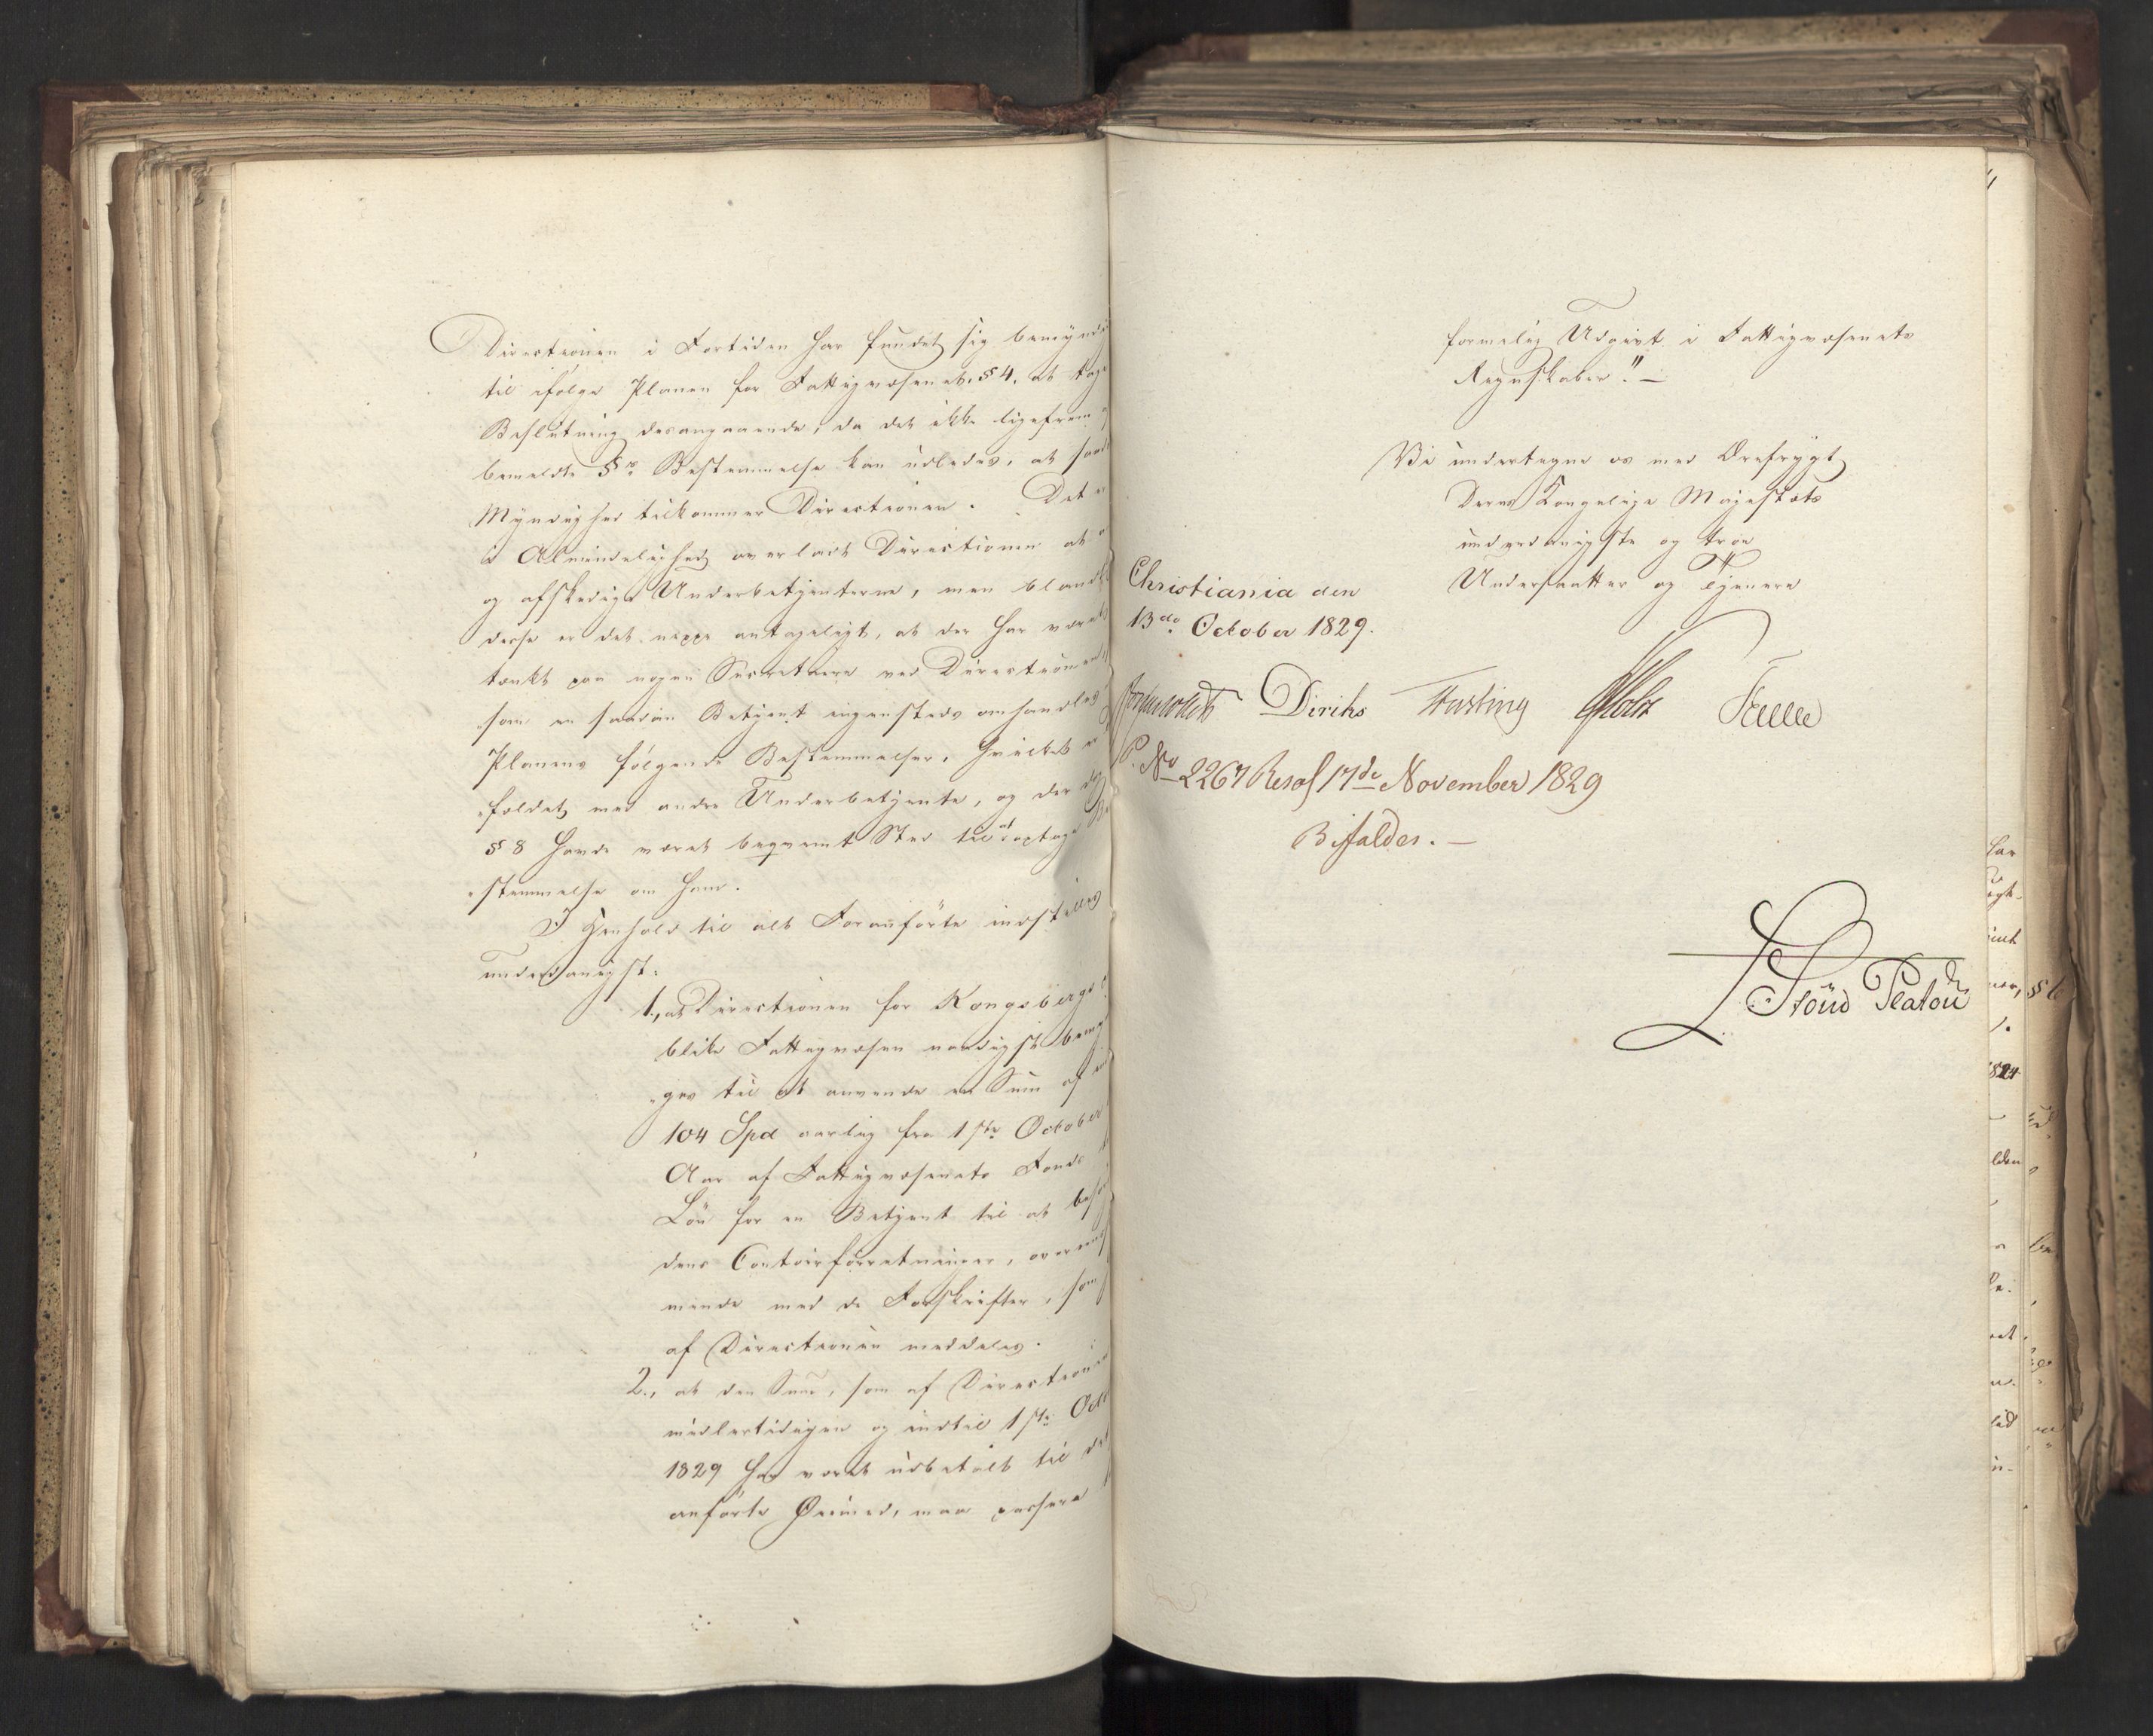 Directionen i Fortiden har fundet sig bemynd
til ifølge Planen for Fattigvæsenet, § 4, at tage
Beslutning desangaaende, da det ikke ligefrem
bemeldte §s Bestemmelse kan udledes, at saad
Myndighed tilkommer Directionen. Det er
i Almindelighed overladt Directionen at
og afskedige Underbetjenterne, men blandt
disse er det neppe antageligt, at der har været
tænkt paa nogen Secretaire ved Directionen,
som en saadan Betjent ingensteds omhandles
Planens følgende Bestemmelser, hvilket er
fældet med andre Underbetjente, og der
§ 8 havde været beqvemt Sted til at optage Be
stemmelse om ham.
I Henhold til alt Foranførte indstilles
underdanigst:
1., at Directionen for Kongsbergs
blike Fattigvæsen naadigst bemyn
ges til at anvende en Sum af
104 Spd aarlig fra 1ste October
Aar af Fattigvæsenets Fond
Løn for en Betjent til at besør
dens Contoirforretninger, overeens
mende med de Forskrifter, som
af Directionen meddeles.
2., at den Sum, som af Direction
midlertidigen og indtil 1ste Oct
1829 har været udbetalt til
anførte Øiemed, maa passere
formelig Udgivt i Fattigvæsenets
Regnskaber." —
Vi undertegne os med Ærefrygt
Deres Kongelige Majestæts
underdanigste og troe
Undersaatter og Tjenere
Christiania den
13de October 1829.
Diriks Holst
P. No 2267 Resol 17de November 1829
Bifaldes. —
Stoud Platou